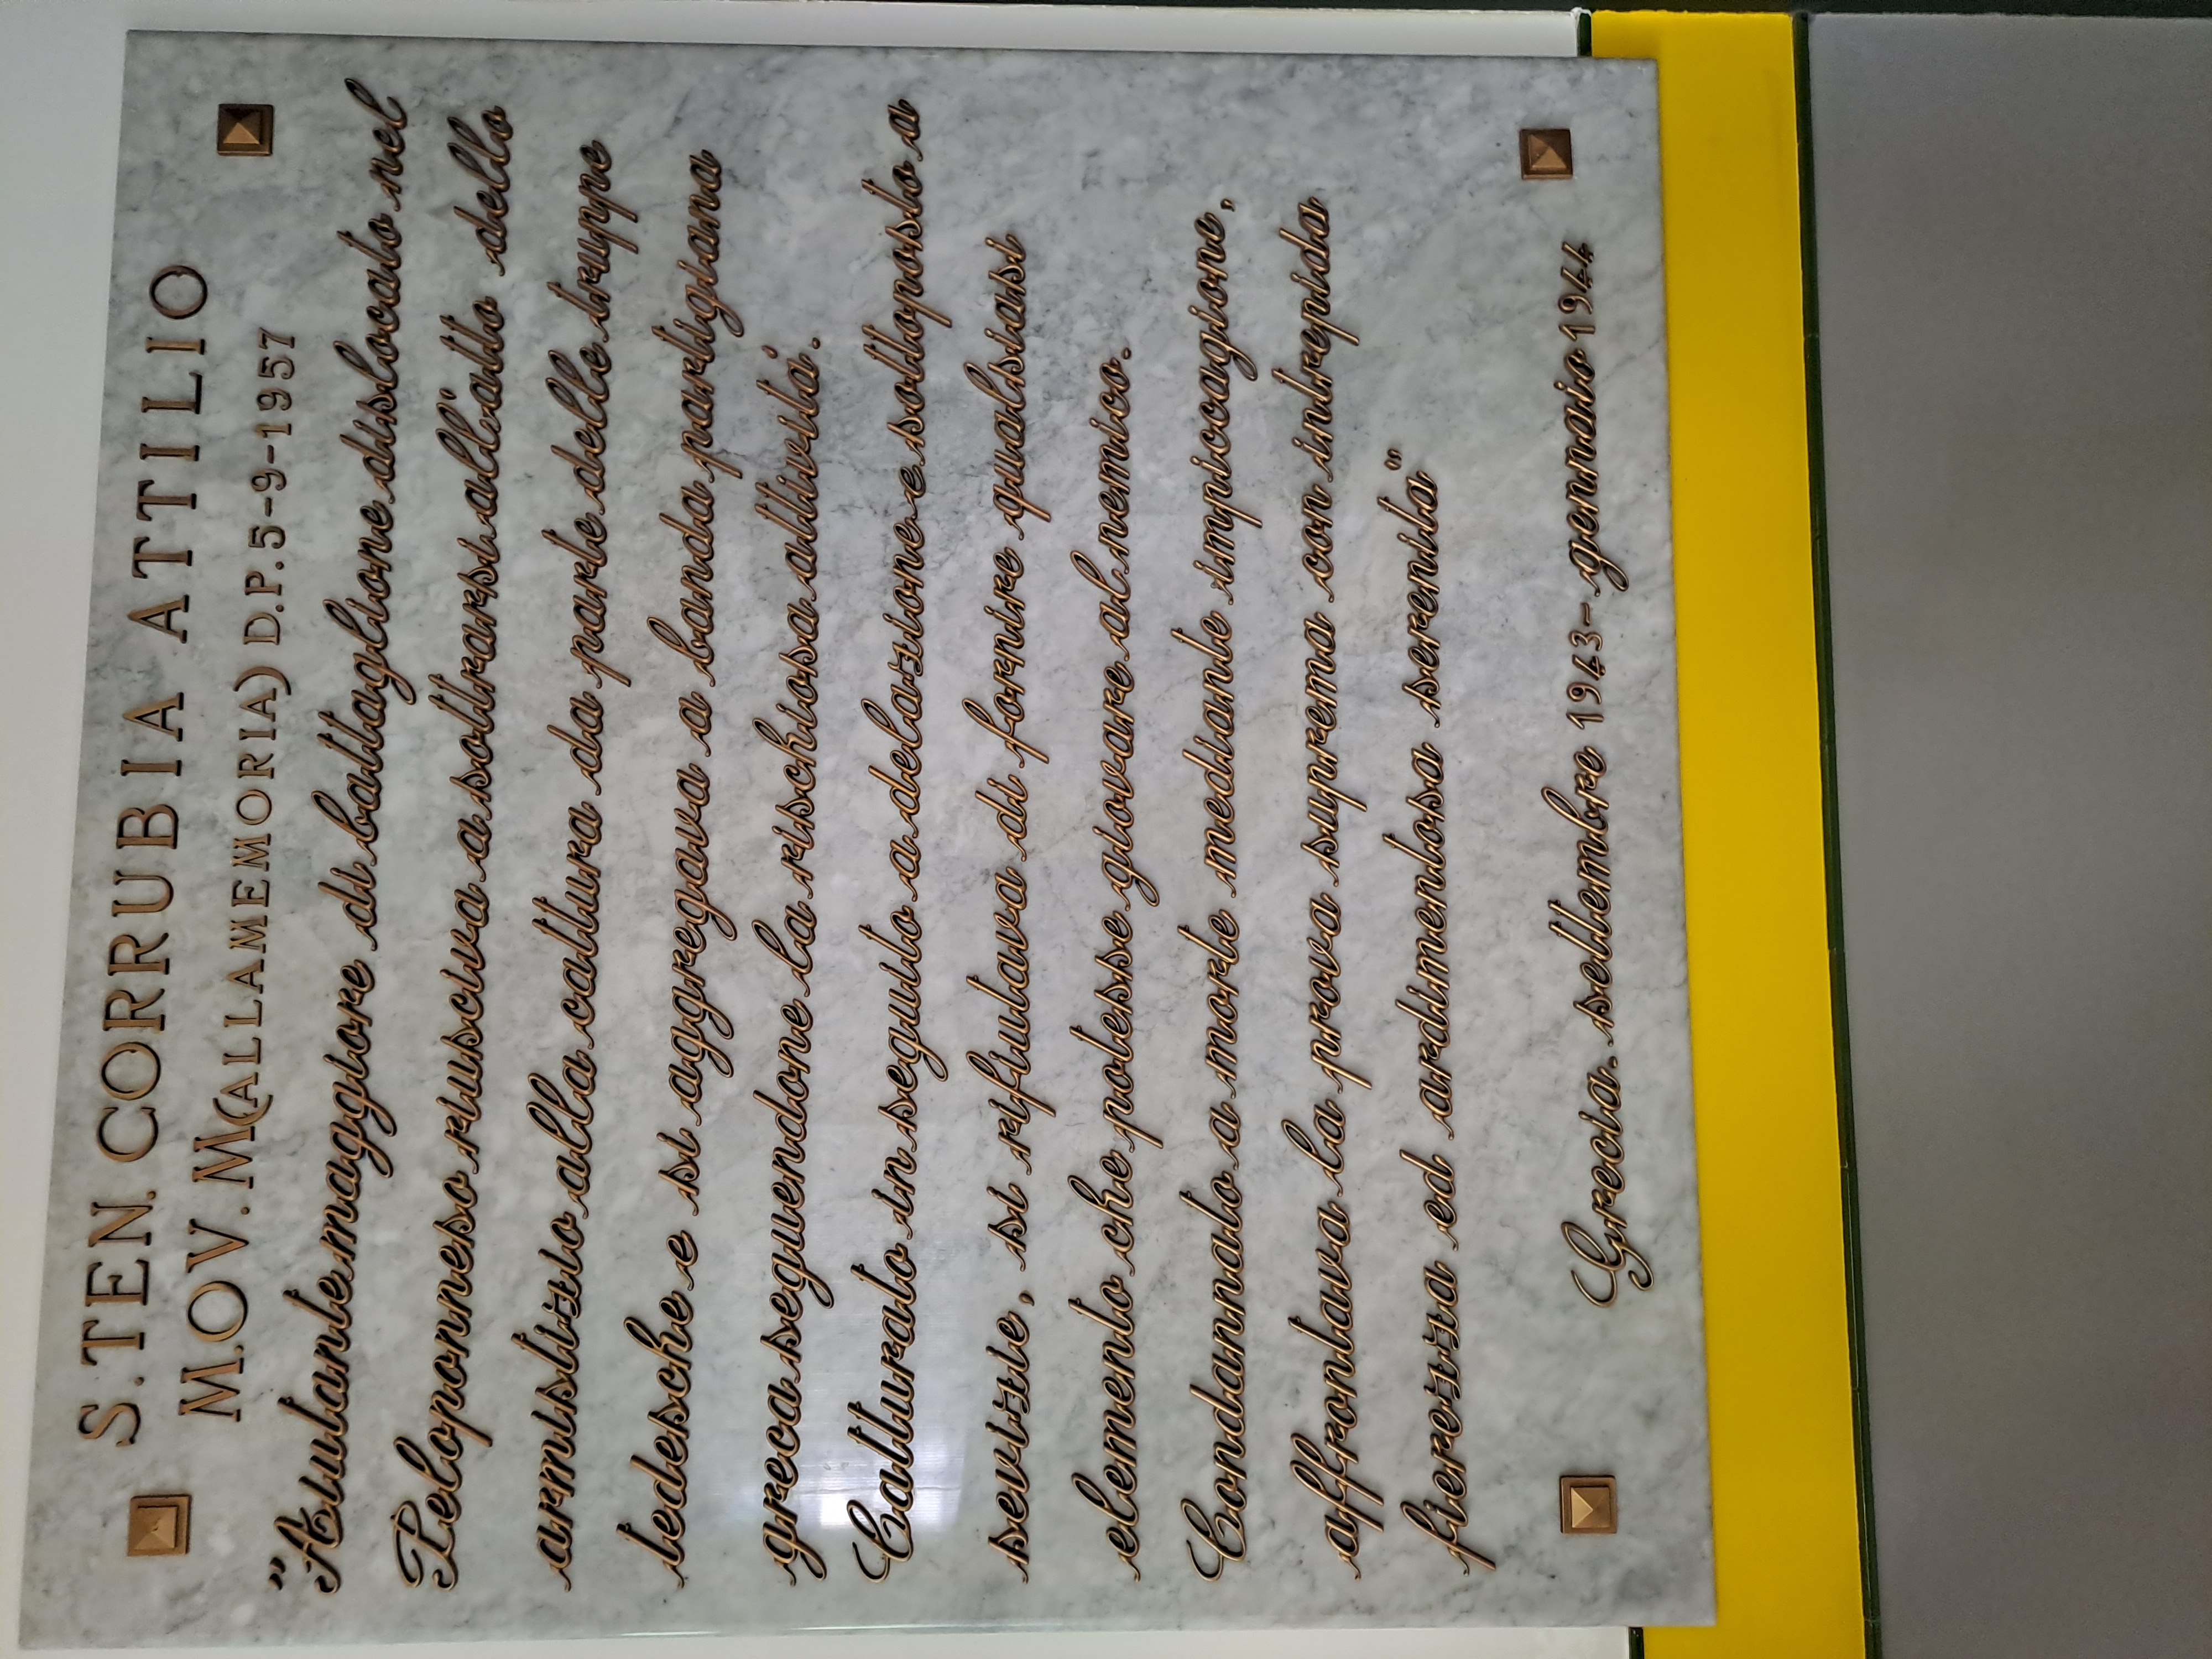 S.TEN. CORRUBIA ATTILIO
M.O.V.M.(ALLA MEMORIA) D.P. 5-9-1957
"Aiutante maggiore di battaglione dislocato nel
Peloponneso riusciva a sottrarsi all'atto dello
armistizio alla cattura da parte delle truppe
tedesche e si aggregava a banda partigiana
greca seguendone la rischiosa attività.
Catturato in seguito a delazione e sottoposto a
sevizie, si rifiutava di fornire qualsiasi
elemento che potesse giovare al nemico.
Condannato a morte mediante impiccagione,
affrontava la prova suprema con intrepida
fierezza ed ardimentosa serenità"
Grecia. settembre 1943 - gennaio 1944